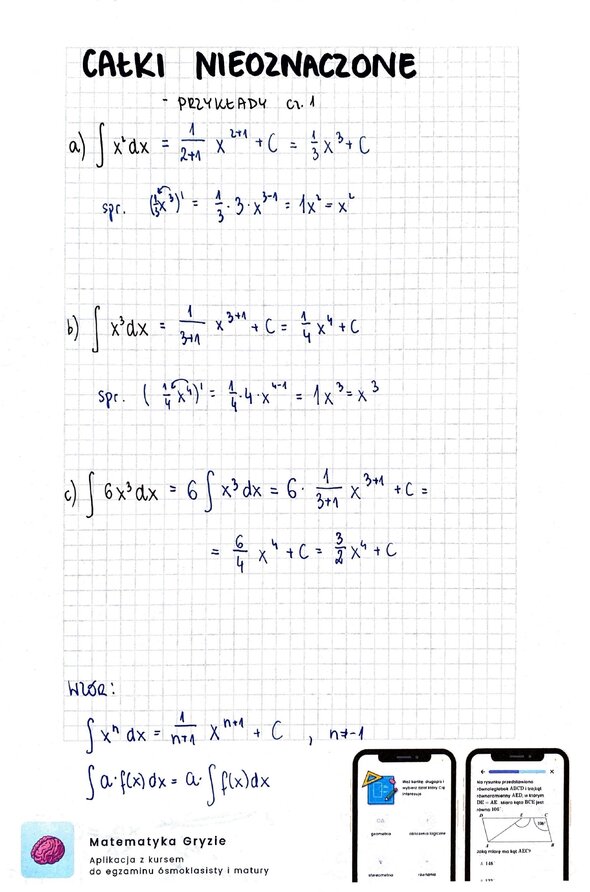 CAŁKI NIEOZNACZONE
- PRZYKŁADY cz. 1
a) ∫ x² dx = 1/(2+1) x^(2+1) + C = 1/3 x³ + C
spr. (1/3 x³)' = 1/3 · 3 · x^(3-1) = 1x² = x²
b) ∫ x³ dx = 1/(3+1) x^(3+1) + C = 1/4 x⁴ + C
spr. (1/4 x⁴)' = 1/4 · 4 · x^(4-1) = 1x³ = x³
c) ∫ 6x³ dx = 6 ∫ x³ dx = 6 · 1/(3+1) x^(3+1) + C =
= 6/4 x⁴ + C = 3/2 x⁴ + C
WZÓR:
∫ xⁿ dx = 1/(n+1) x^(n+1) + C , n≠-1
∫ a · f(x) dx = a · ∫ f(x) dx
Matematyka Gryzie
Aplikacja z kursem
do egzaminu ósmoklasisty i matury
wybierz dział który Cię
interesuje
geometria
stereometria
Na rysunku przedstawiono
równoległobok ABCD i trójkąt
równoramienny AED, w którym
DE = AE
równa 106°
D
E
C
106°
A
B
Jaką miarę ma kąt AEC?
A 148